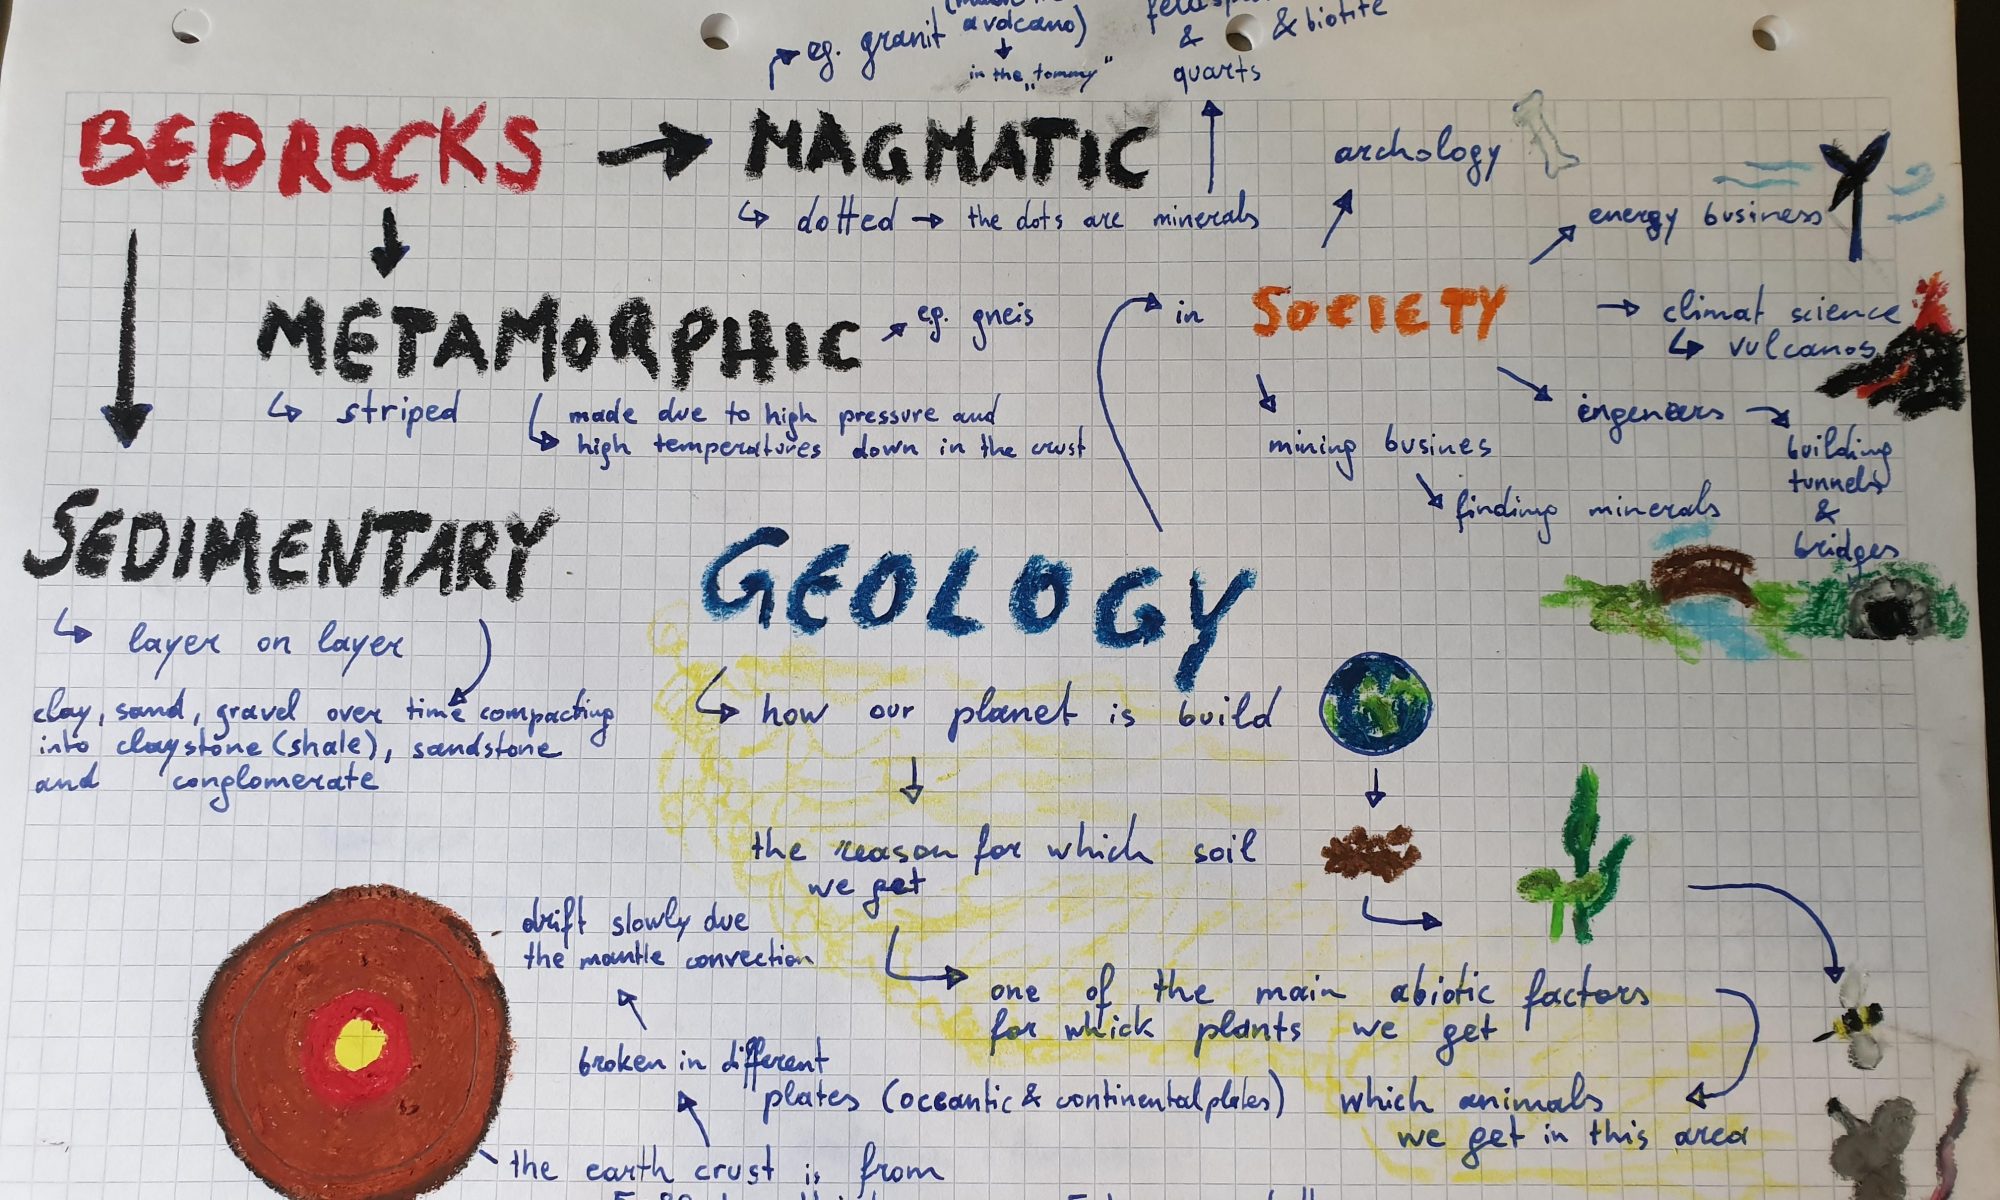 a volcano)
& & biotite
eg. granit
in the „tommy"
quarts
BEDROCKS → MAGMATIC
↳ dotted → the dots are minerals
METAMORPHIC
e.g. gneis
↳ striped
made due to high pressure and
high temperatures down in the crust
SEDIMENTARY
↳ layer on layer
clay, sand, gravel over time compacting
into claystone (shale), sandstone
and conglomerate
in SOCIETY
archology
energy business
→ climat science
↳ vulcanos
engeneers
building
tunnels
&
bridges
mining busines
finding minerals
GEOLOGY
↳ how our planet is build
the reason for which soil
we get
one of the main abiotic factors
for which plants we get
which animals
we get in this area
drift slowly due
the mantle convection
broken in different
plates (oceantic & continentalplates)
the earth crust is from